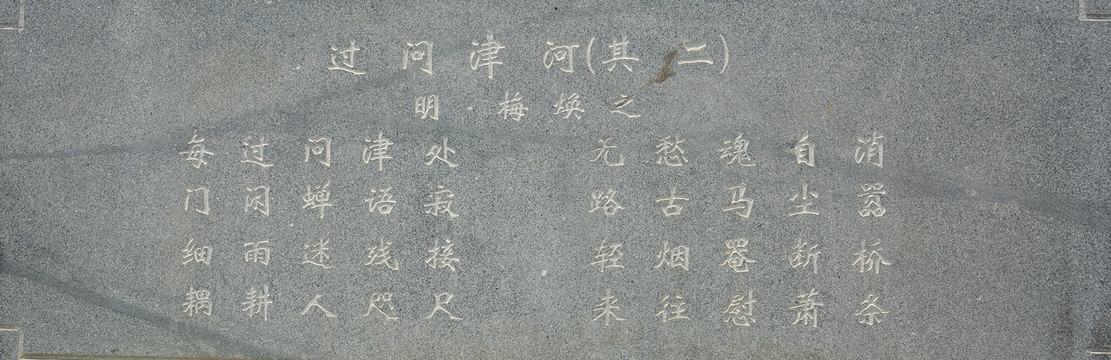 过问津河(其二)
明·梅焕之
每过问津处 无愁魂自消
门闲蝉语寂 路古马尘嚣
细雨迷残接 轻烟罨断桥
耦耕人咫尺 来往慰萧条